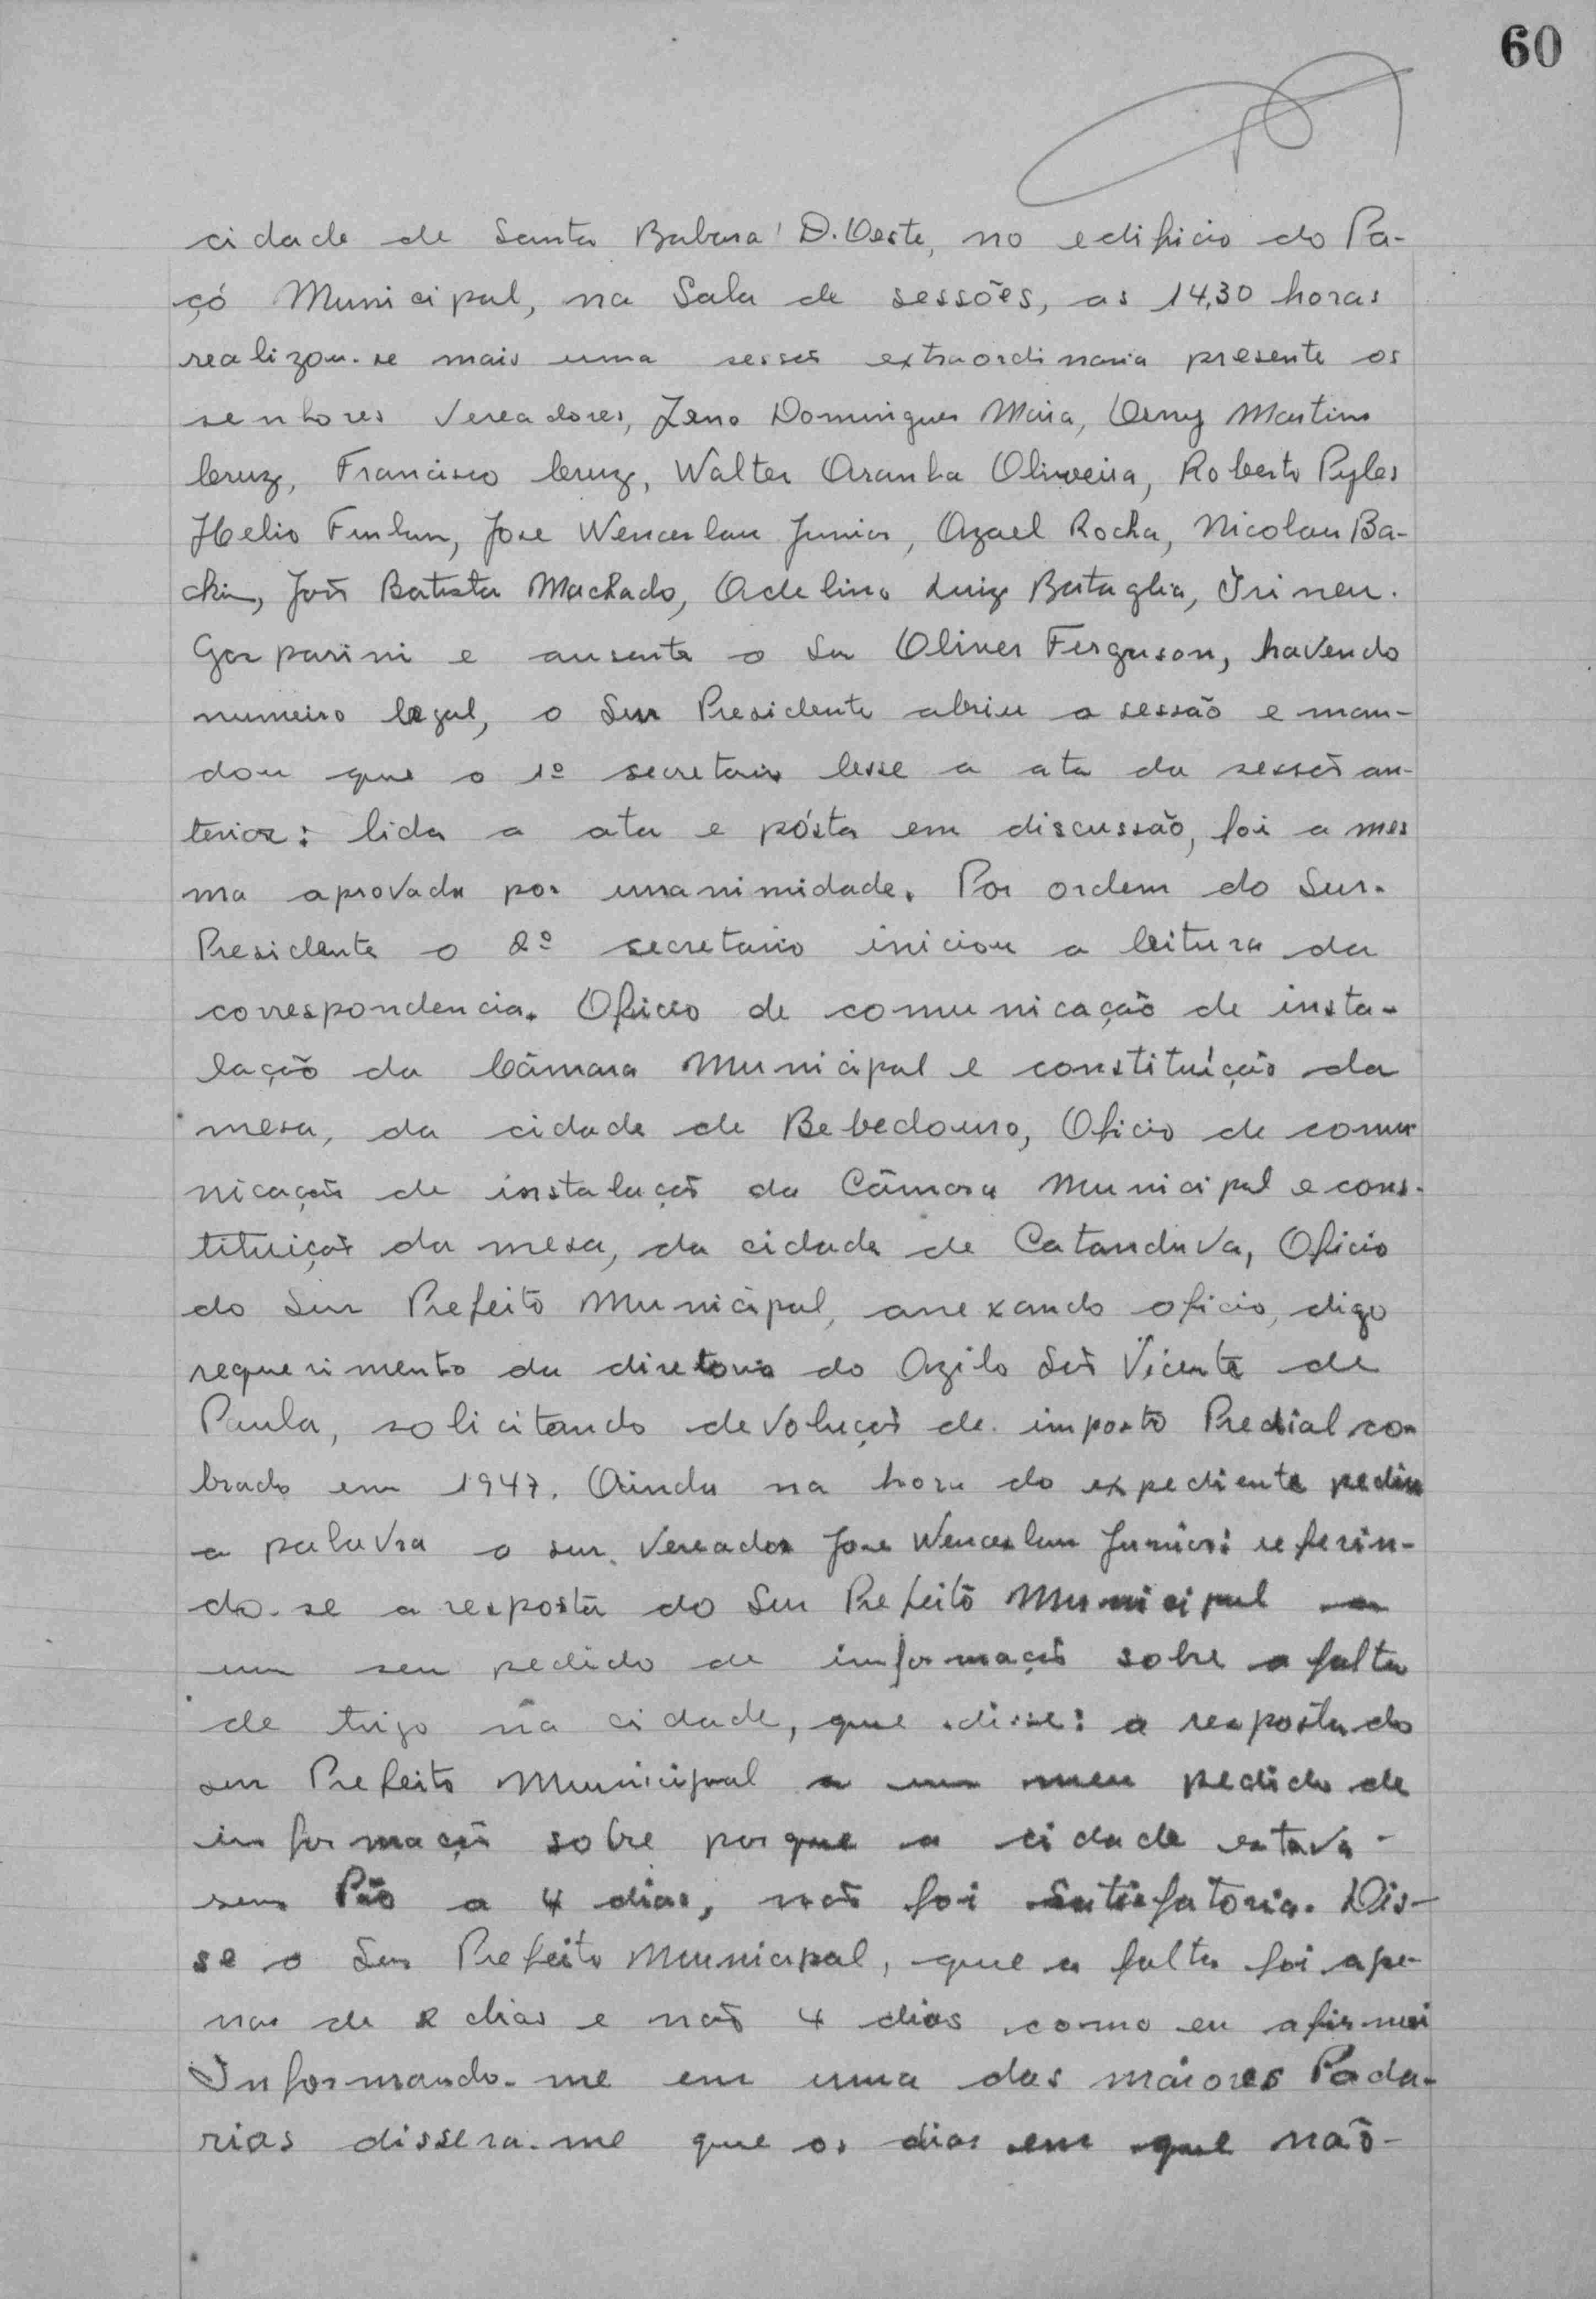 60
cidade de Santa Barbara D. Oeste, no edificio do Pa-
çó Municipal, na Sala de sessões, as 14,30 horas
realizou-se mais uma sessão extraordinaria presente os
senhores vereadores, Zeno Domingues Maia, Osny Martins
Cruz, Francisco Cruz, Walter Aranha Oliveira, Roberto Pyles
Helio Furlan, Jose Wenceslau Junior, Azael Rocha, Nicolau Ba-
chin, João Batista Machado, Adelino Luiz Bataglia, Irineu.
Gasparini e ausente o Snr Oliver Ferguson, havendo
numeiro legal, o Snr Presidente abriu a sessão e man-
dou que o 1º secretario lesse a ata da sessão an-
terior: lida a ata e pósta em discussão, foi a mes
ma aprovada por unanimidade. Por ordem do Snr.
Presidente o 2º secretario iniciou a leitura da
correspondencia. Oficio de comunicação de insta-
lação da Câmara Municipal e constituição da
mesa, da cidade de Bebedouro, Oficio de comu
nicação de instalação da Câmara Municipal e cons-
tituição da mesa, da cidade de Catanduva, Oficio
do Snr Prefeito Municipal, anexando oficio, digo
requerimento da diretoria do Azilo São Vicente de
Paula, solicitando devolução de imposto Predial co-
brado em 1947. Ainda na hora do expediente pediu
a palavra o snr. Vereador Jose Wenceslau Junior: referin-
do-se a resposta do Snr Prefeito Municipal a
um seu pedido de informação sobre a falta
de trigo na cidade, que disse: a resposta do
snr Prefeito Municipal a um meu pedido de
informação sobre porque a cidade estava-
sem Pão a 4 dias, não foi Satisfatoria. Dis-
se o Snr Prefeito Municipal, que a falta foi ape-
nas de 2 dias e não 4 dias como eu afirmei
Informando-me em uma das maiores Pada-
rias dissera-me que os dias em que não-